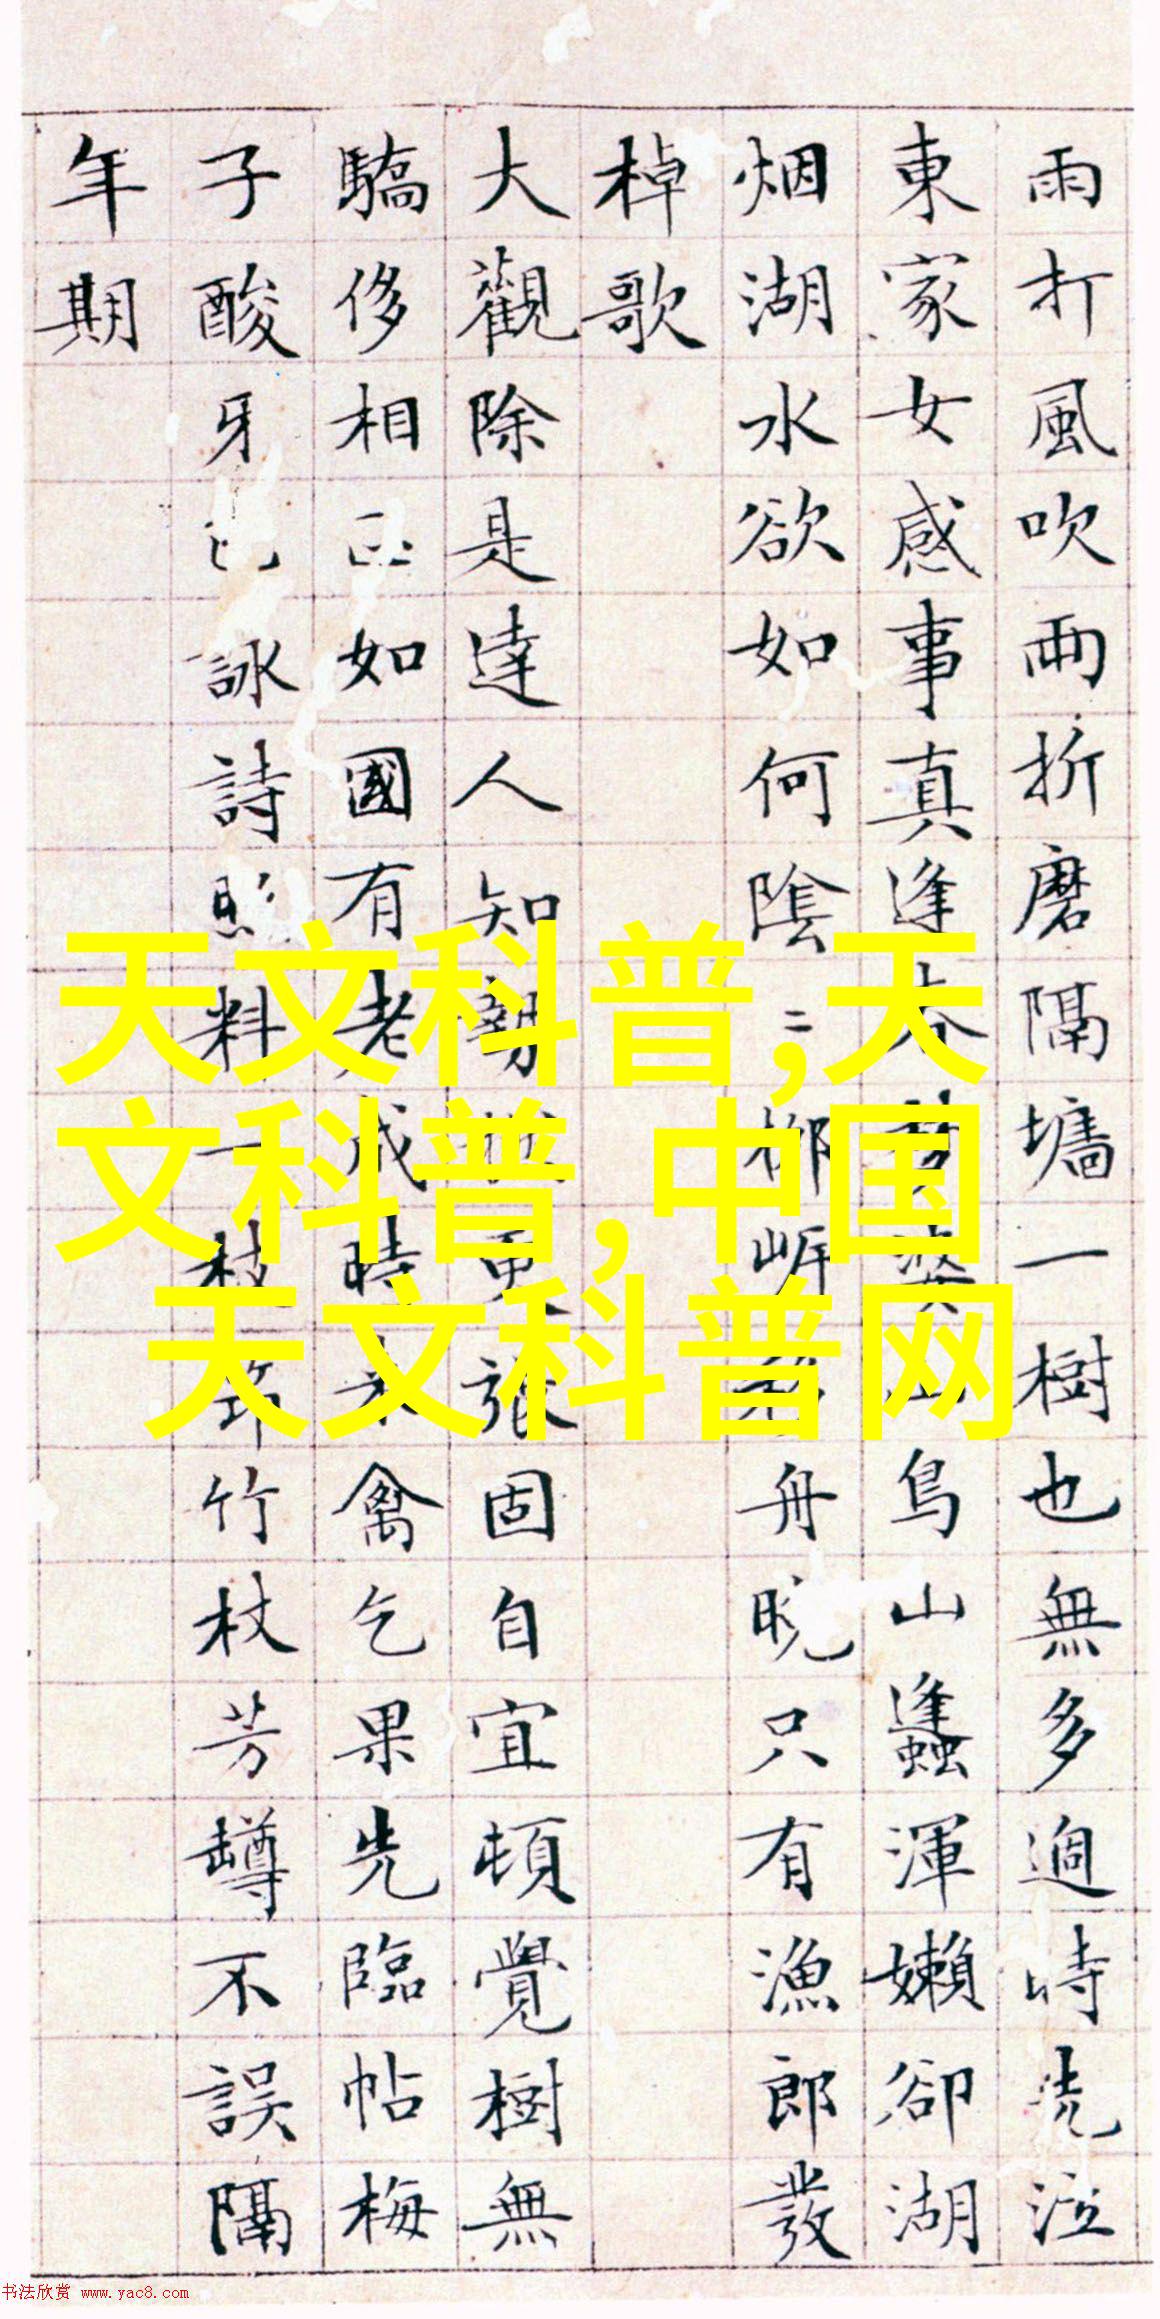 雨打風吹雨折磨隔墻一樹也無多過時洗泣
東家女感事真逢鳥山蠭渾嬾卻湖
烟湖水欲如何陰二柳岍舟晚只有漁郎發
棹歌
大觀除是達人知張固自宜頓覺樹無
驕侈相如國有老成時禽乞果先臨帖梅
子酸牙詠詩料一枝筇竹杖芳罇不誤隔
年期
天文科普,天
文科普,中国
天文科普网
书法欣赏 www.yac8.com